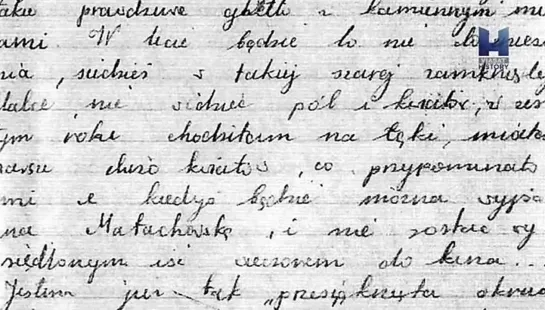 prawdziwe ghetto z kamiennym mu
ami. W lecie będzie to nie do
nia, siedzieć w takiej szarej zamknięte
nie widzieć pól i kwiatów, w
ym roku chodziłam na łąki, miała
dużo kwiatów, co przypominało
mi że kiedyś będzie można wyjś
na Małachowskę, i nie zostać wy
siedlonym iść wieczorem do kina...
Jestem już tak „przesiąknięta okruc
H
HISTORY